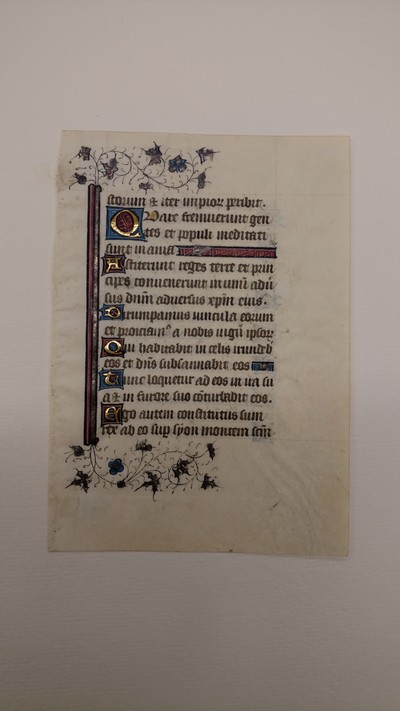 storum & iter impiorum peribit.
Quare fremuerunt gen
tes et populi meditati
sunt inania
Astiterunt reges terre et prin
cipes convenerunt in unum adu
sus dnm adversus xpm eius.
Dirumpamus vincula eorum
et proiciam⁹ a nobis iugū ipsorz
Qui habitabit in celis irrideb
eos et dns subsannabit eos
Tunc loquetur ad eos in ira su
a & in furore suo cōturbabit eos.
Ego autem constitutus sum
rex ab eo sup syon montem scm